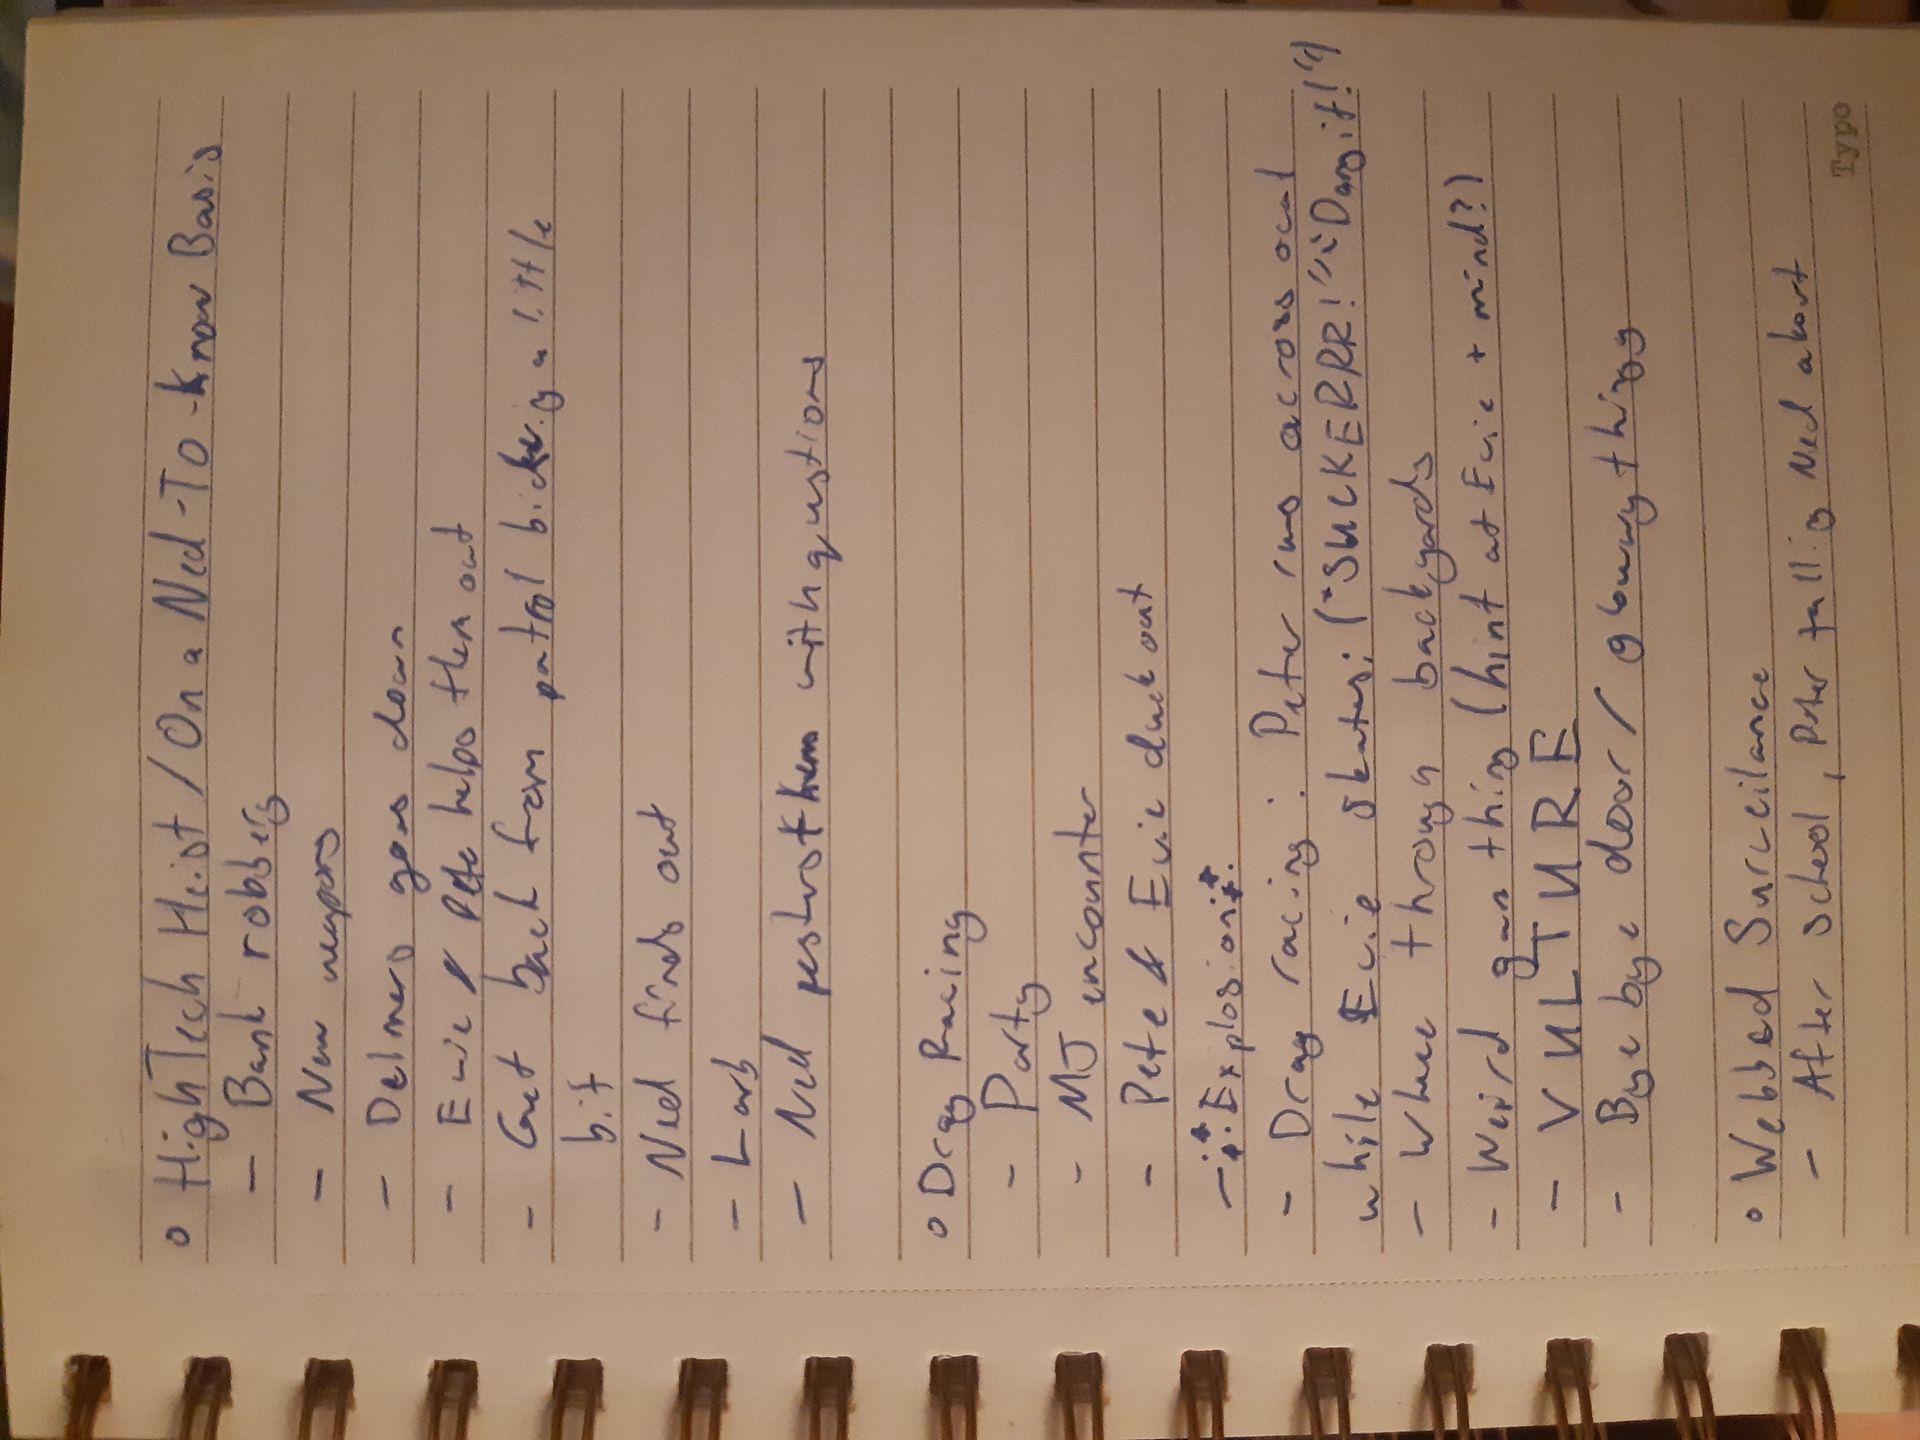 o High Tech Heist / On a Ned-To-Know Basis
- Bank robbery
- New weapons
- Delmers goes down
- Evie & Pete helps them out
- Get back from patrol bickering a little
bit
- Ned finds out
- Larb
- Ned pesters them with questions
o Drag Racing
- Party
- MJ encounter
- Pete & Evie duck out
- Explosion
- Drag racing: Peter runs across ocal
while Evie skates; ("SUCKERRR!" "Dangit!")
- Whee through backyards
- Weird gun thing (hint at Evie + mind?)
- VULTURE
- Bye bye door / gbuuy thingy
o Webbed Surveilance
- After School, Peter telling Ned about
Typo